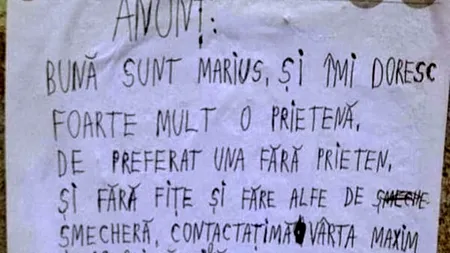 ANUNȚ:
BUNĂ SUNT MARIUS, ȘI ÎMI DORESC
FOARTE MULT O PRIETENĂ,
DE PREFERAT UNA FĂRĂ PRIETEN,
ȘI FĂRĂ FIȚE ȘI FĂRE ALFE DE ȘMECHE
ȘMECHERĂ, CONTACTAȚIMĂ VÂRTA MAXIM